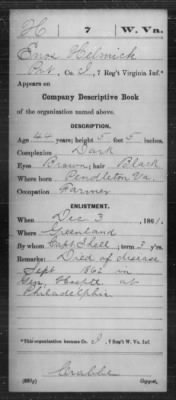 H | 7 | W. Va.
Enos Helmick
Pvt, Co. I, 7 Reg't Virginia Inf.*
Appears on
Company Descriptive Book
of the organization named above.
DESCRIPTION.
Age 44 years; height 5 feet 5 inches.
Complexion Dark
Eyes Brown; hair Black
Where born Pendleton Va.
Occupation Farmer
ENLISTMENT.
When Dec 3, 1861.
Where Greenland
By whom Capt Shell; term 3 y'rs.
Remarks: Died of disease
Sept 1862 in
Gen. Hosptl at
Philadelphia
*This organization became Co. I, 7 Reg't W. Va. Inf.
Crabbe
(383g) Copyist.